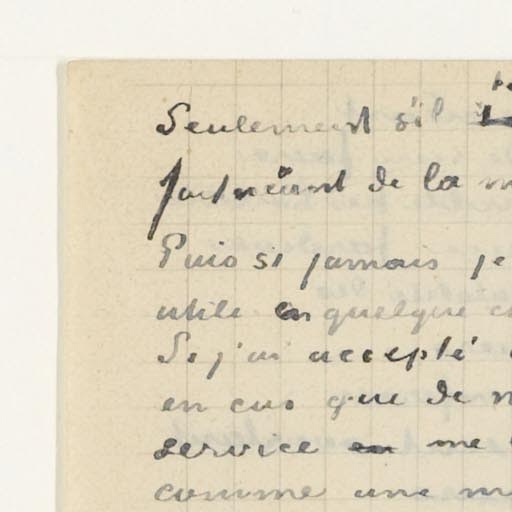 Seulement s'il
de la
Puis si jamais je
utile en quelque
Si j'ai accepté
en cas que de
service en me
comme une